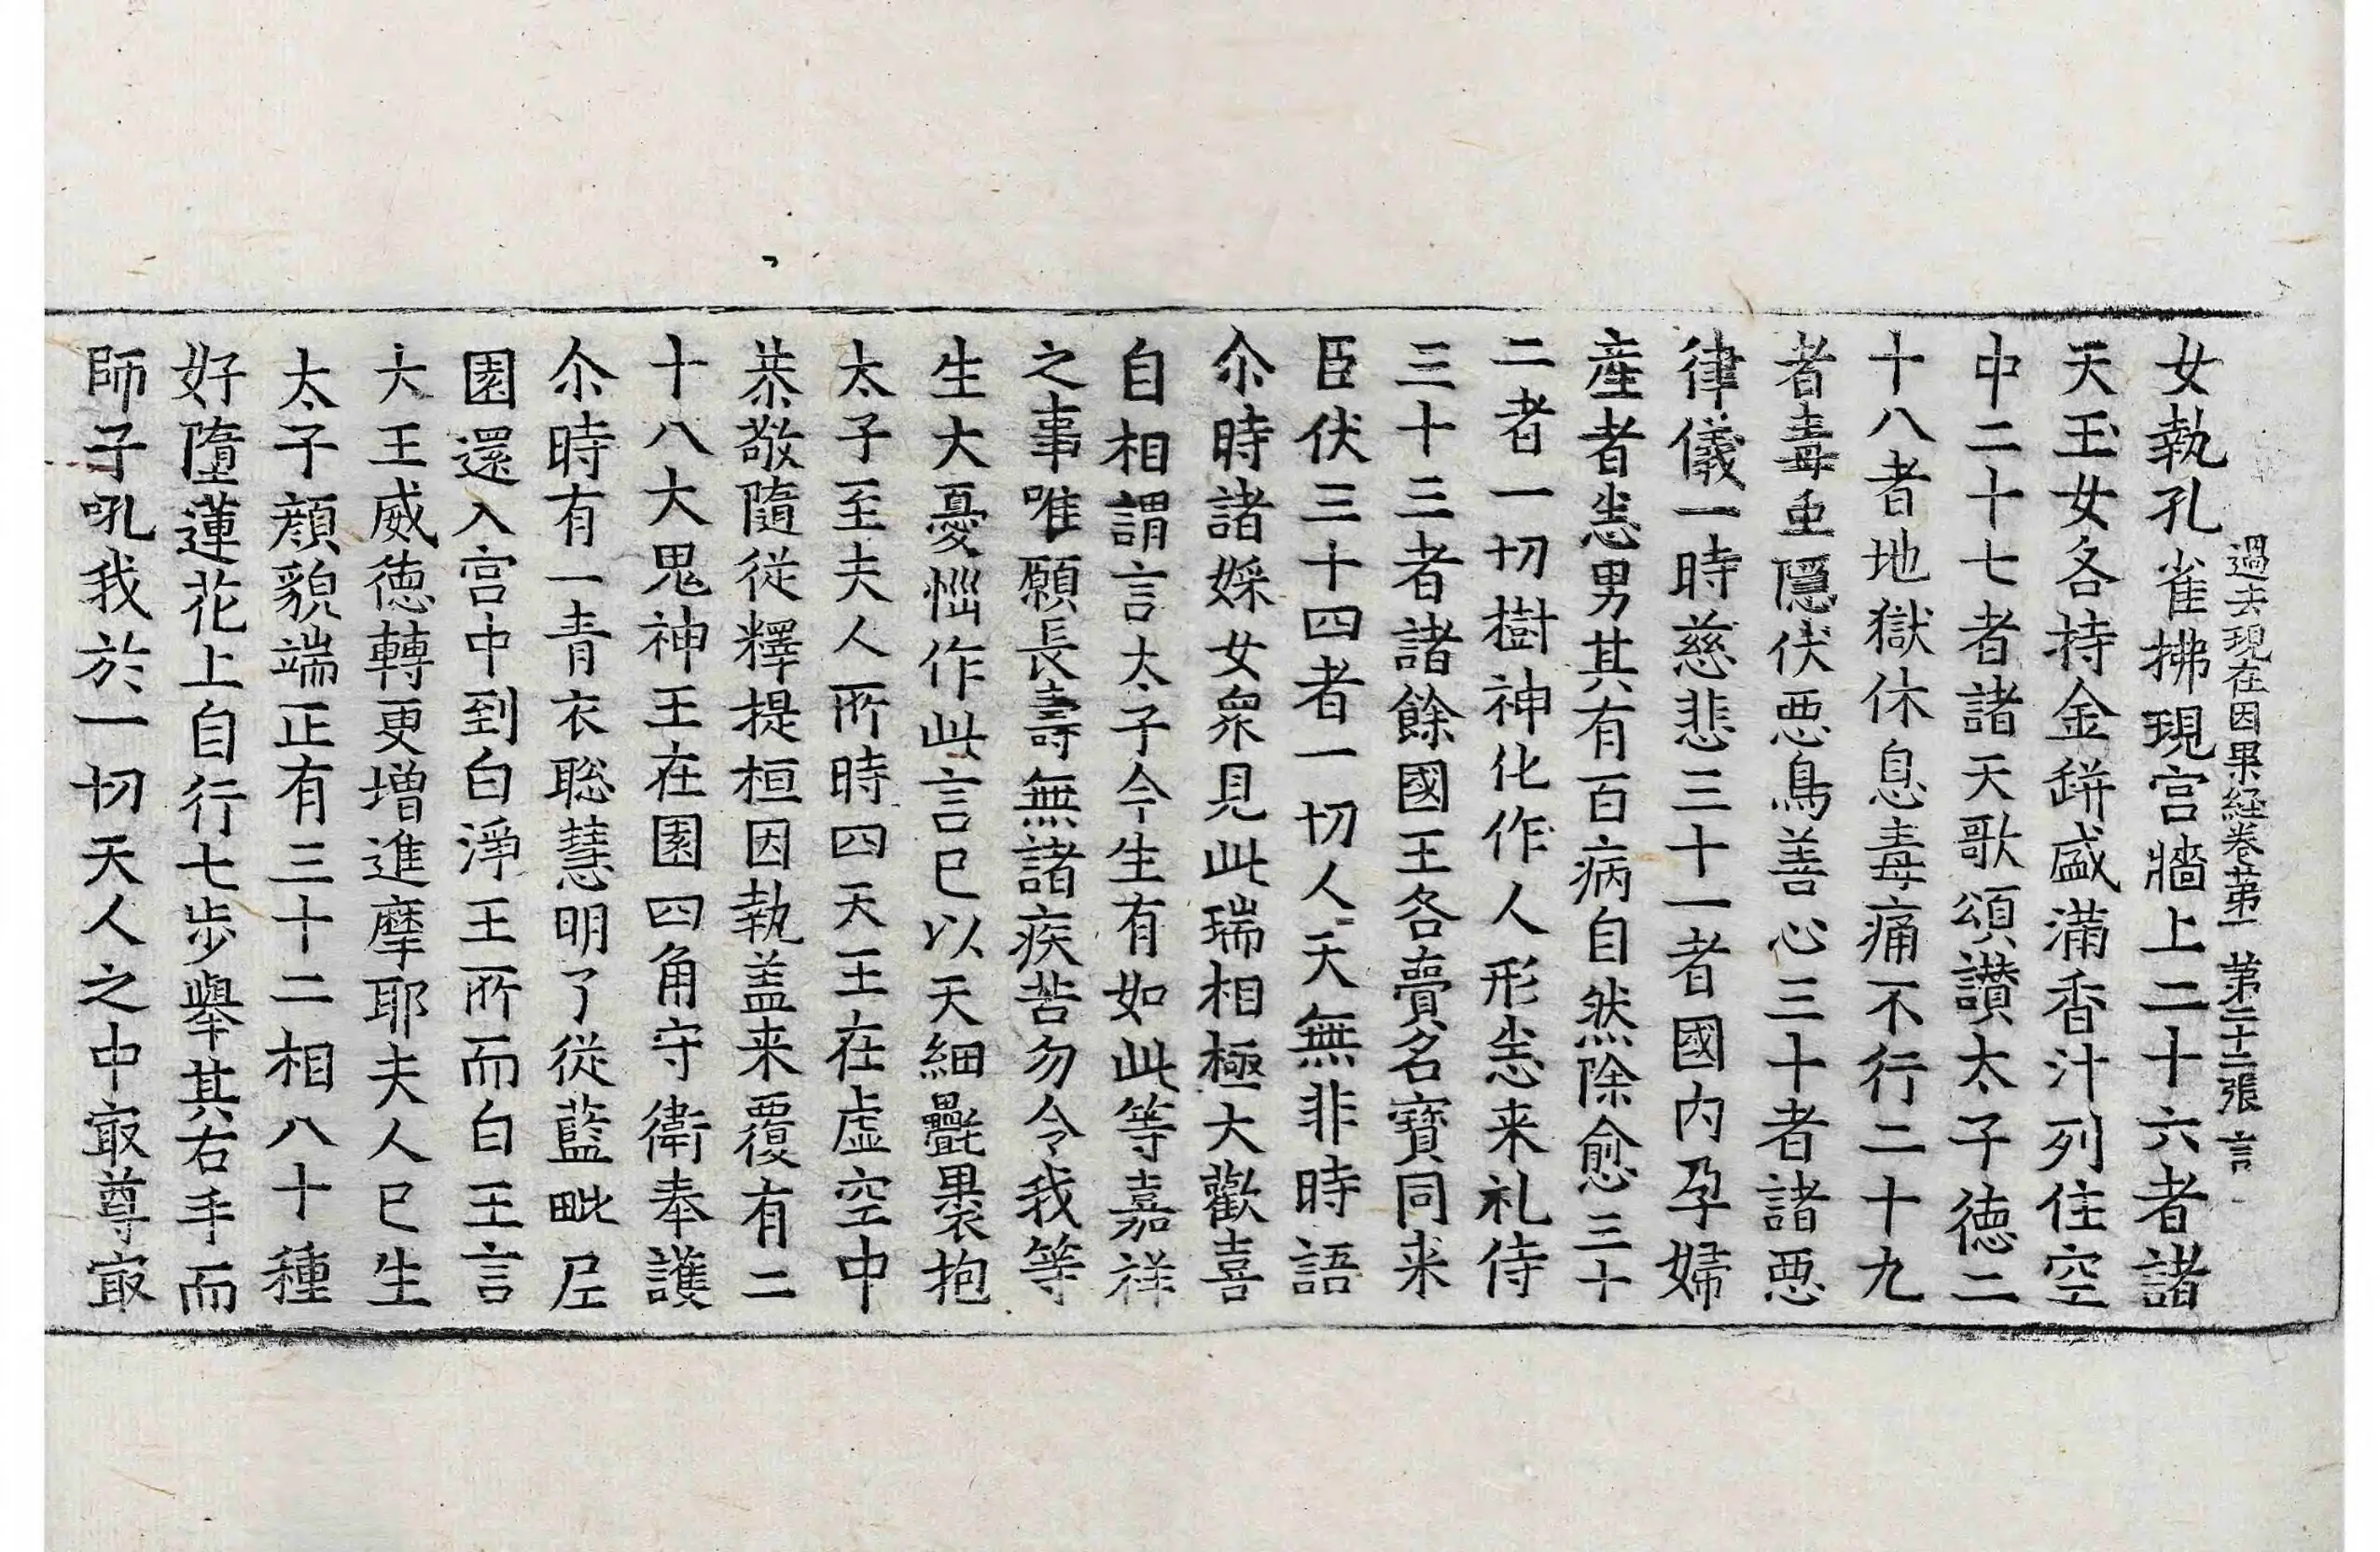 過去現在因果経卷苐一 苐二十二張 言
女執孔雀拂現宫牆上二十六者諸
天玉女各持金缾盛滿香汁列住空
中二十七者諸天歌頌讃太子徳二
十八者地獄休息毒痛不行二十九
者毒䖝隱伏惡鳥善心三十者諸惡
律儀一時慈悲三十一者國内孕婦
産者悉男其有百病自然除愈三十
二者一切樹神化作人形悉来礼侍
三十三者諸餘國王各賷名寶同来
臣伏三十四者一切人天無非時語
尒時諸婇女衆見此瑞相極大歡喜
自相謂言太子今生有如此等嘉祥
之事唯願長壽無諸疾苦勿令我等
生大憂惱作此言已以天細㲲裹抱
太子至夫人所時四天王在虚空中
恭敬隨從釋提桓因執盖来覆有二
十八大鬼神王在園四角守衛奉護
尒時有一青衣聡慧明了從藍毗尼
園還入宫中到白淨王所而白王言
大王威徳轉更增進摩耶夫人已生
太子顔貌端正有三十二相八十種
好墮蓮花上自行七步舉其右手而
師子吼我於一切天人之中㝡尊㝡